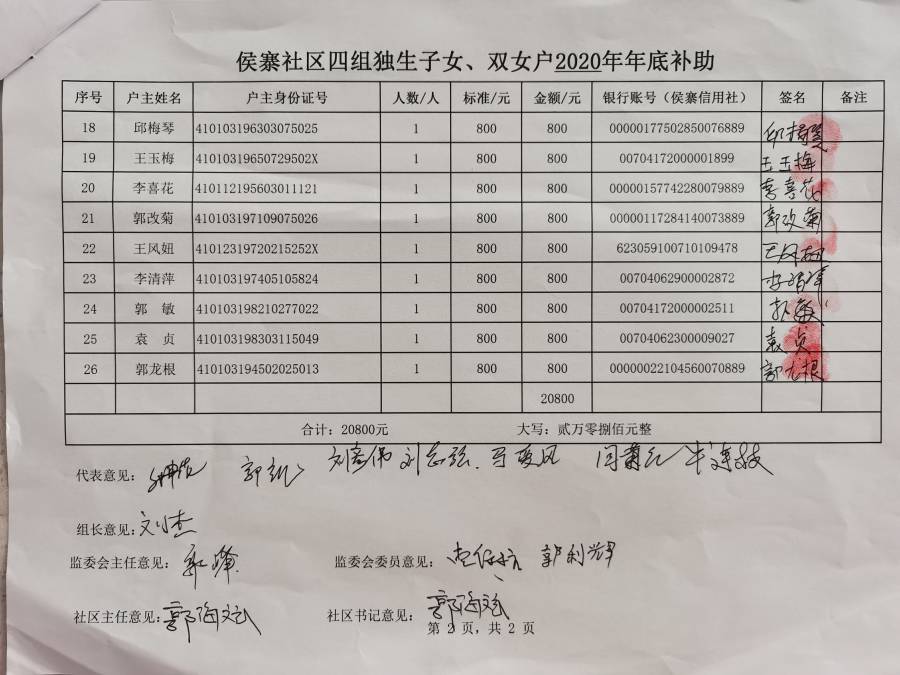 侯寨社区四组独生子女、双女户2020年年底补助
序号 户主姓名 户主身份证号 人数/人 标准/元 金额/元 银行账号（侯寨信用社） 签名 备注
18 邱梅琴 410103196303075025 1 800 800 00000177502850076889
19 王玉梅 41010319650729502X 1 800 800 00704172000001899 王玉梅
20 李喜花 410112195603011121 1 800 800 00000157742280079889 李喜花
21 郭改菊 410103197109075026 1 800 800 00000117284140073889 郭改菊
22 王风妞 41012319720215252X 1 800 800 623059100710109478 王风妞
23 李清萍 410103197405105824 1 800 800 00704062900002872 李清萍
24 郭 敏 410103198210277022 1 800 800 00704172000002511 郭敏
25 袁 贞 410103198303115049 1 800 800 00704062300009027 袁贞
26 郭龙根 410103194502025013 1 800 800 00000022104560070889 郭龙根
20800
合计：20800元 大写：贰万零捌佰元整
代表意见：
组长意见：刘杰
监委会主任意见： 监委会委员意见： 郭利辉
社区主任意见：郭海斌 社区书记意见：郭海斌
第 2 页，共 2 页